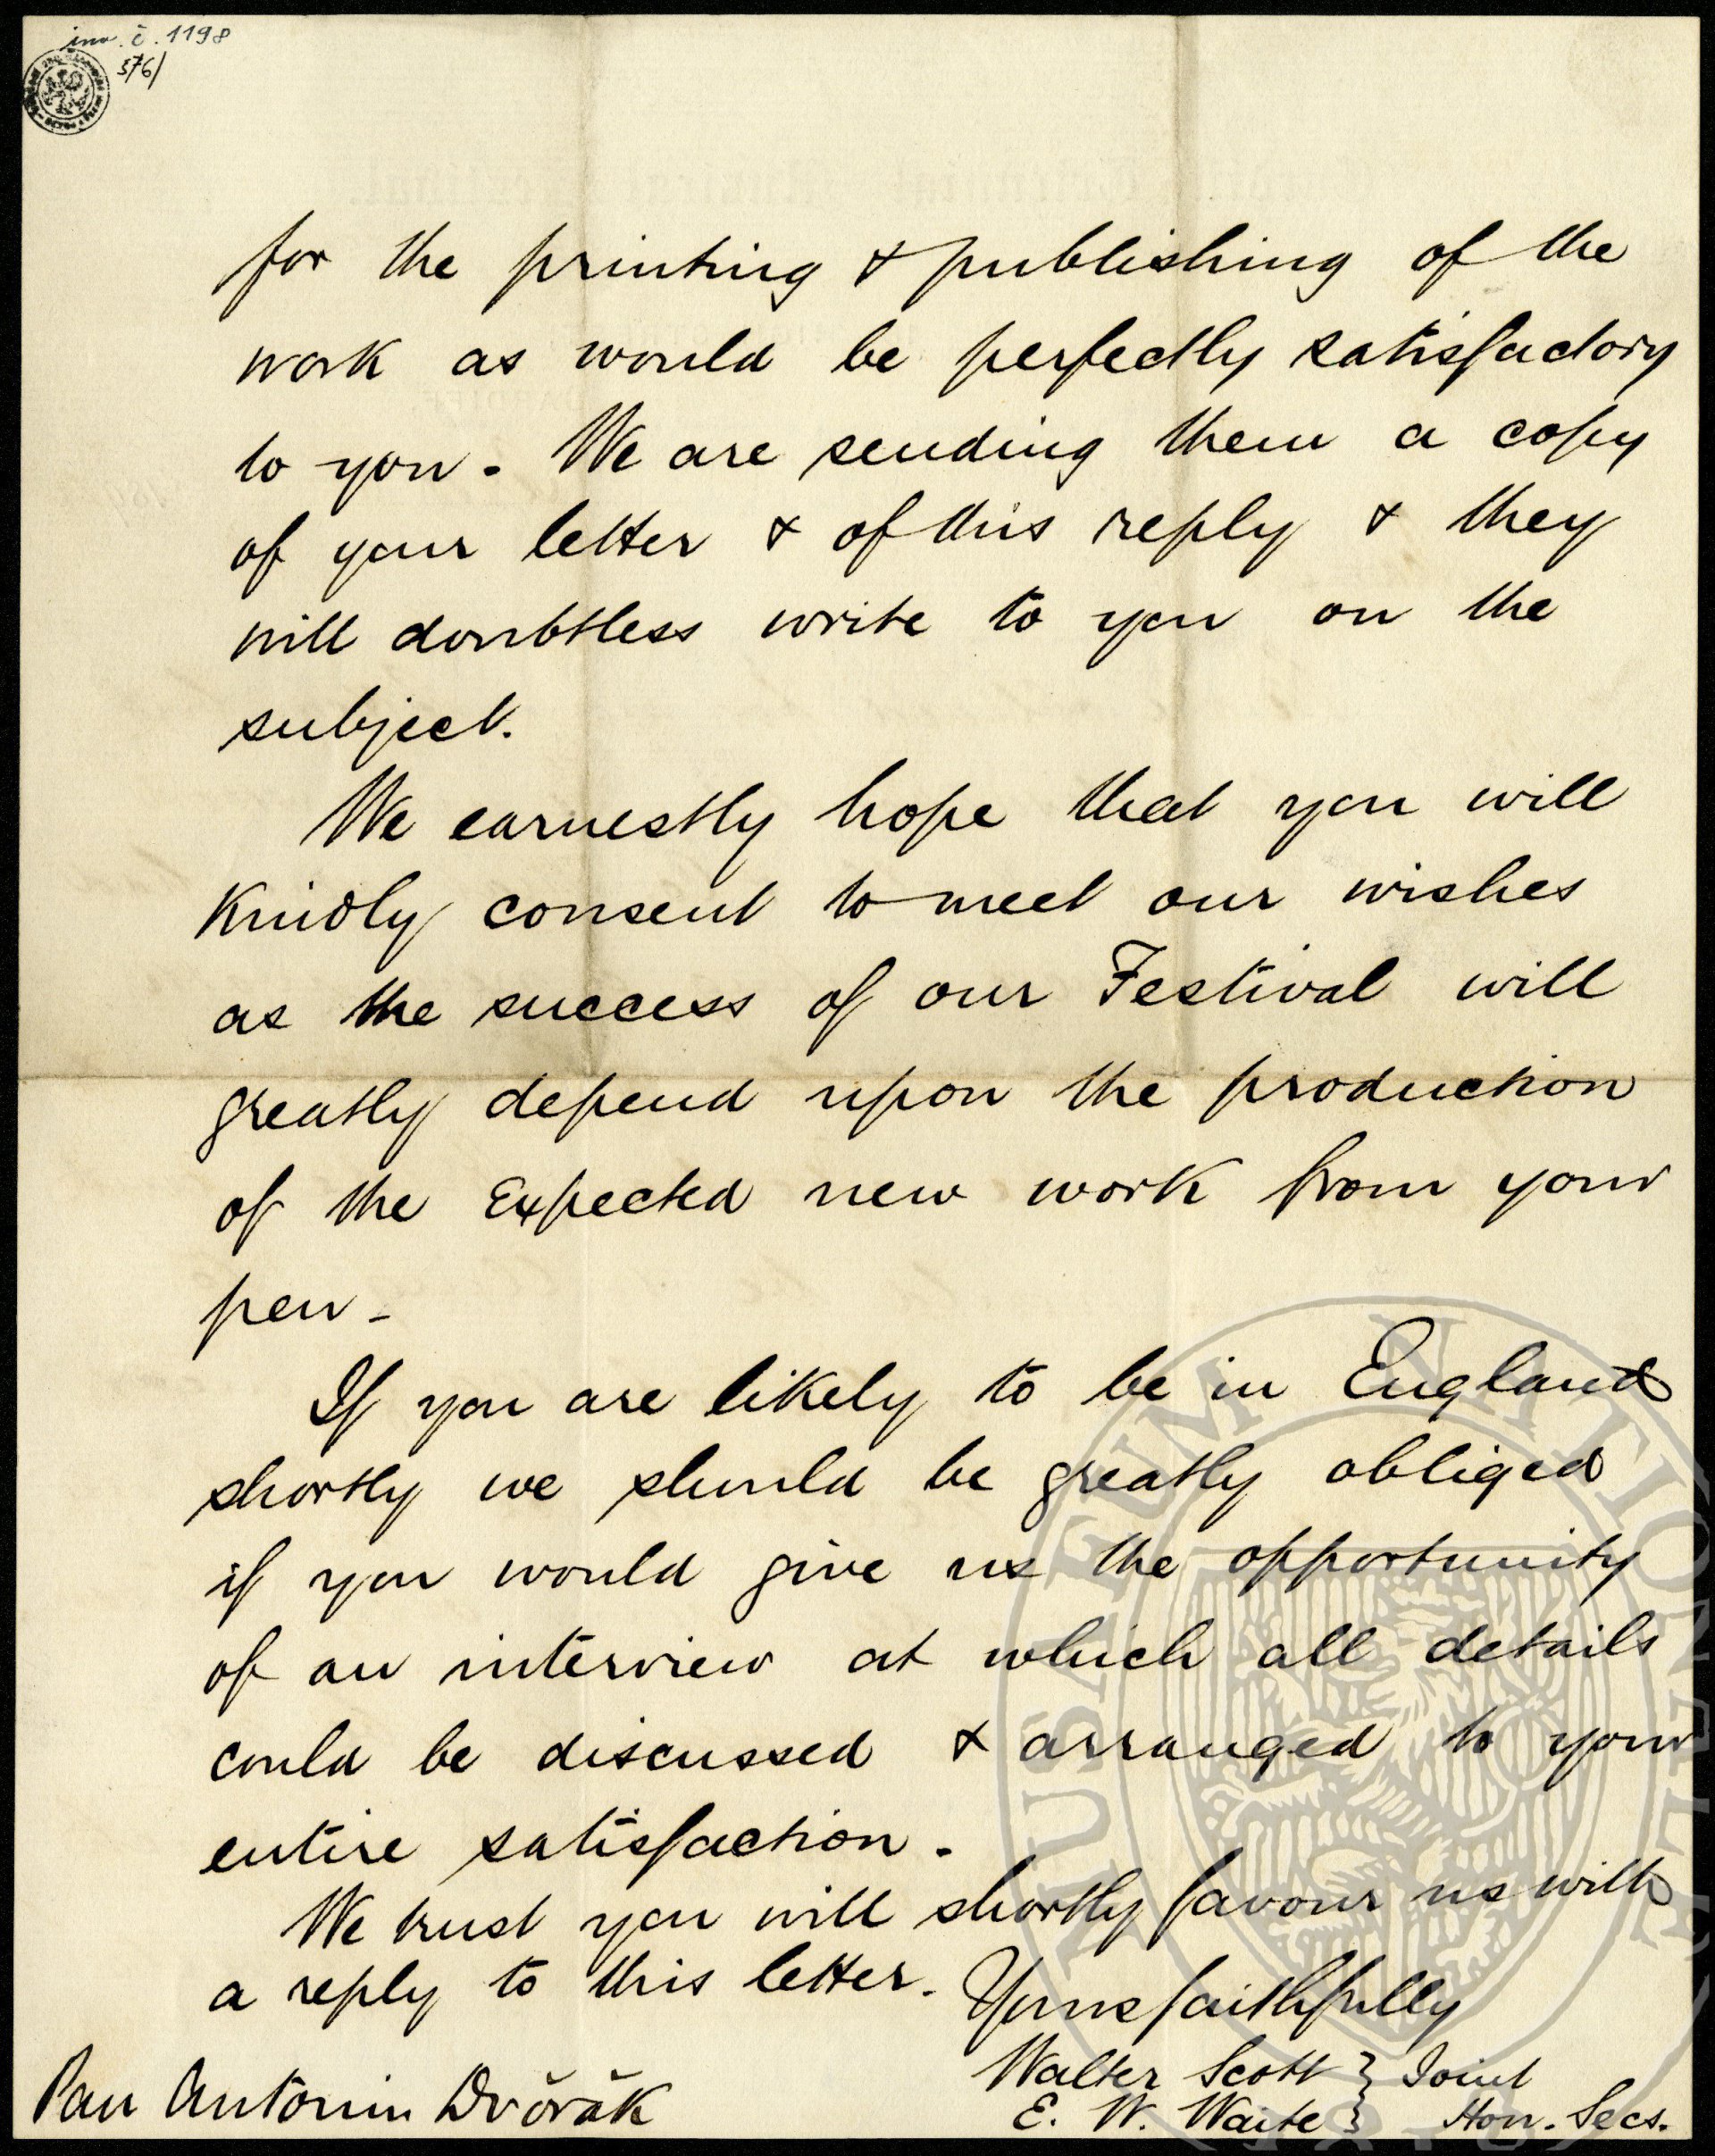 inv. č. 1198
576/
for the printing & publishing of the
work as would be perfectly satisfactory
to you. We are sending them a copy
of your letter & of this reply & they
will doubtless write to you on the
subject.
We earnestly hope that you will
kindly consent to meet our wishes
as the success of our Festival will
greatly depend upon the production
of the Expected new work from your
pen -
If you are likely to be in England
shortly we should be greatly obliged
if you would give us the opportunity
of an interview at which all details
could be discussed & arranged to your
entire satisfaction.
We trust you will shortly favour us with
a reply to this letter.
Yours faithfully
Walter Scott } Joint
E. W. Waite } Hon. Secs.
Pan Antonin Dvořák
MUSAEUM NATIONALE